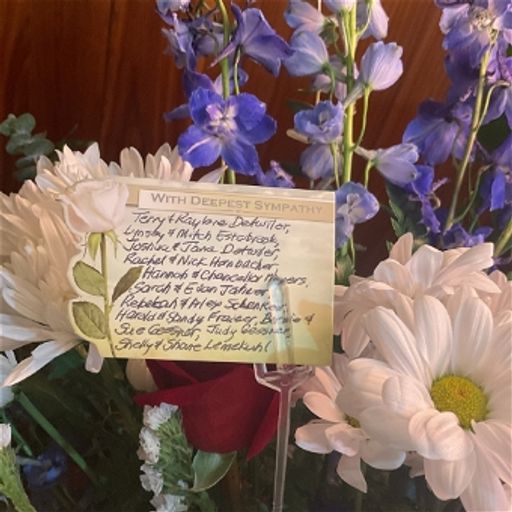 WITH DEEPEST SYMPATHY
Terry & Raylene Detwiler,
Lindsy & Mitch Estabrook,
Joshua & Jana Detwiler,
Rachel & Nick Hornbacher,
Hannah & Chancellor Meyers,
Sarah & Evan
Rebekah & Alex Schenker
Harold & Sandy Frauer, &
Sue Gessner, Judy Gessner,
Shelly & Shane Lemekuhl